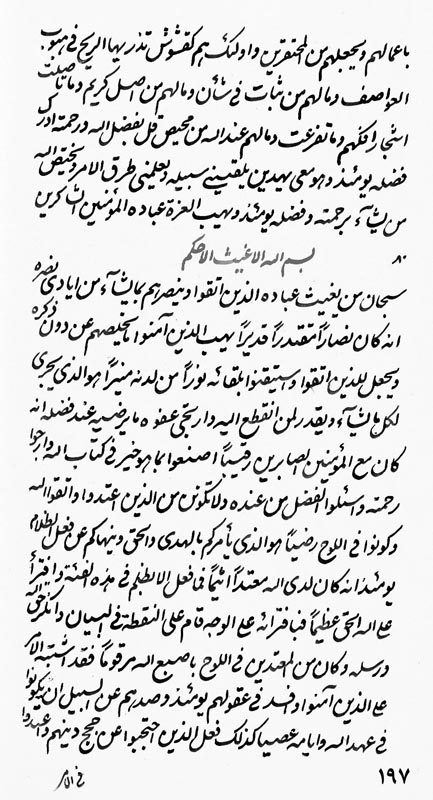 باعمالهم ويجعلهم من المحتقرين واولئك هم كقشوش تذريها الريح فى هبوب
العواصف ومالهم من ثبات فى شأن ومالهم من اصل كريم وما
اشجار افكهم وما تفرعت ومالهم عند الله من محيص قل بفضل الله ورحمته ادرك
فضله يومئذ وهو معى يهدين بلقينى سبيله ويعلمنى طرق الامر ويختص الله
من يشآء برحمته وفضله يومئذ ويهب العزة عباده المؤمنين الشاكرين
٨٠ بسم الله الاغيث الاحكم
سبحان من يغيث عباده الذين اتقوا وينصرهم بمايشآء من ايادى نصره
انه كان نصاراً مقتدراً قديراً يهب الذين آمنوا مايخلصهم عن دون ذكره
ويجعل للذين اتقوا واستيقنوا بلقائه نوراً من لدنه منيراً هو الذى يجرى
لكل مايشآء ويقدر لمن انقطع اليه وارتجى عفوه مايرضيه عند فضله انه
كان مع المؤمنين الصابرين رقيباً اصنعوا بما هو خير فى كتاب الله وارجوا
رحمته واسئلوا الفضل من عنده ولا تكونن من الذين اعتدوا واتقوا الله
وكونوا فى اللوح رضياً هو الذى يأمركم بالهدى والحق وينهاكم عن فعل الظلام
يومئذ انه كان لدى الله معتداً اثيماً فما فعل الاالظلم فى هذه الفئة وافترأ
على الله الحق عظيماً فبافترائه على الوجه قام على النقطة فى البيان وانكر حق الله
ورسله وكان من المعتدين فى اللوح باصبع الله مرقوماً فقد اشتبه الامر
على الذين آمنوا وافسد فى عقولهم يومئذ وصدهم عن السبيل ان يكونوا
فى عهد الله وايامه عصيا كذلك فعل الذين احتجبوا عن حجج دينهم واعتدوا
١٩٧ فى الامر